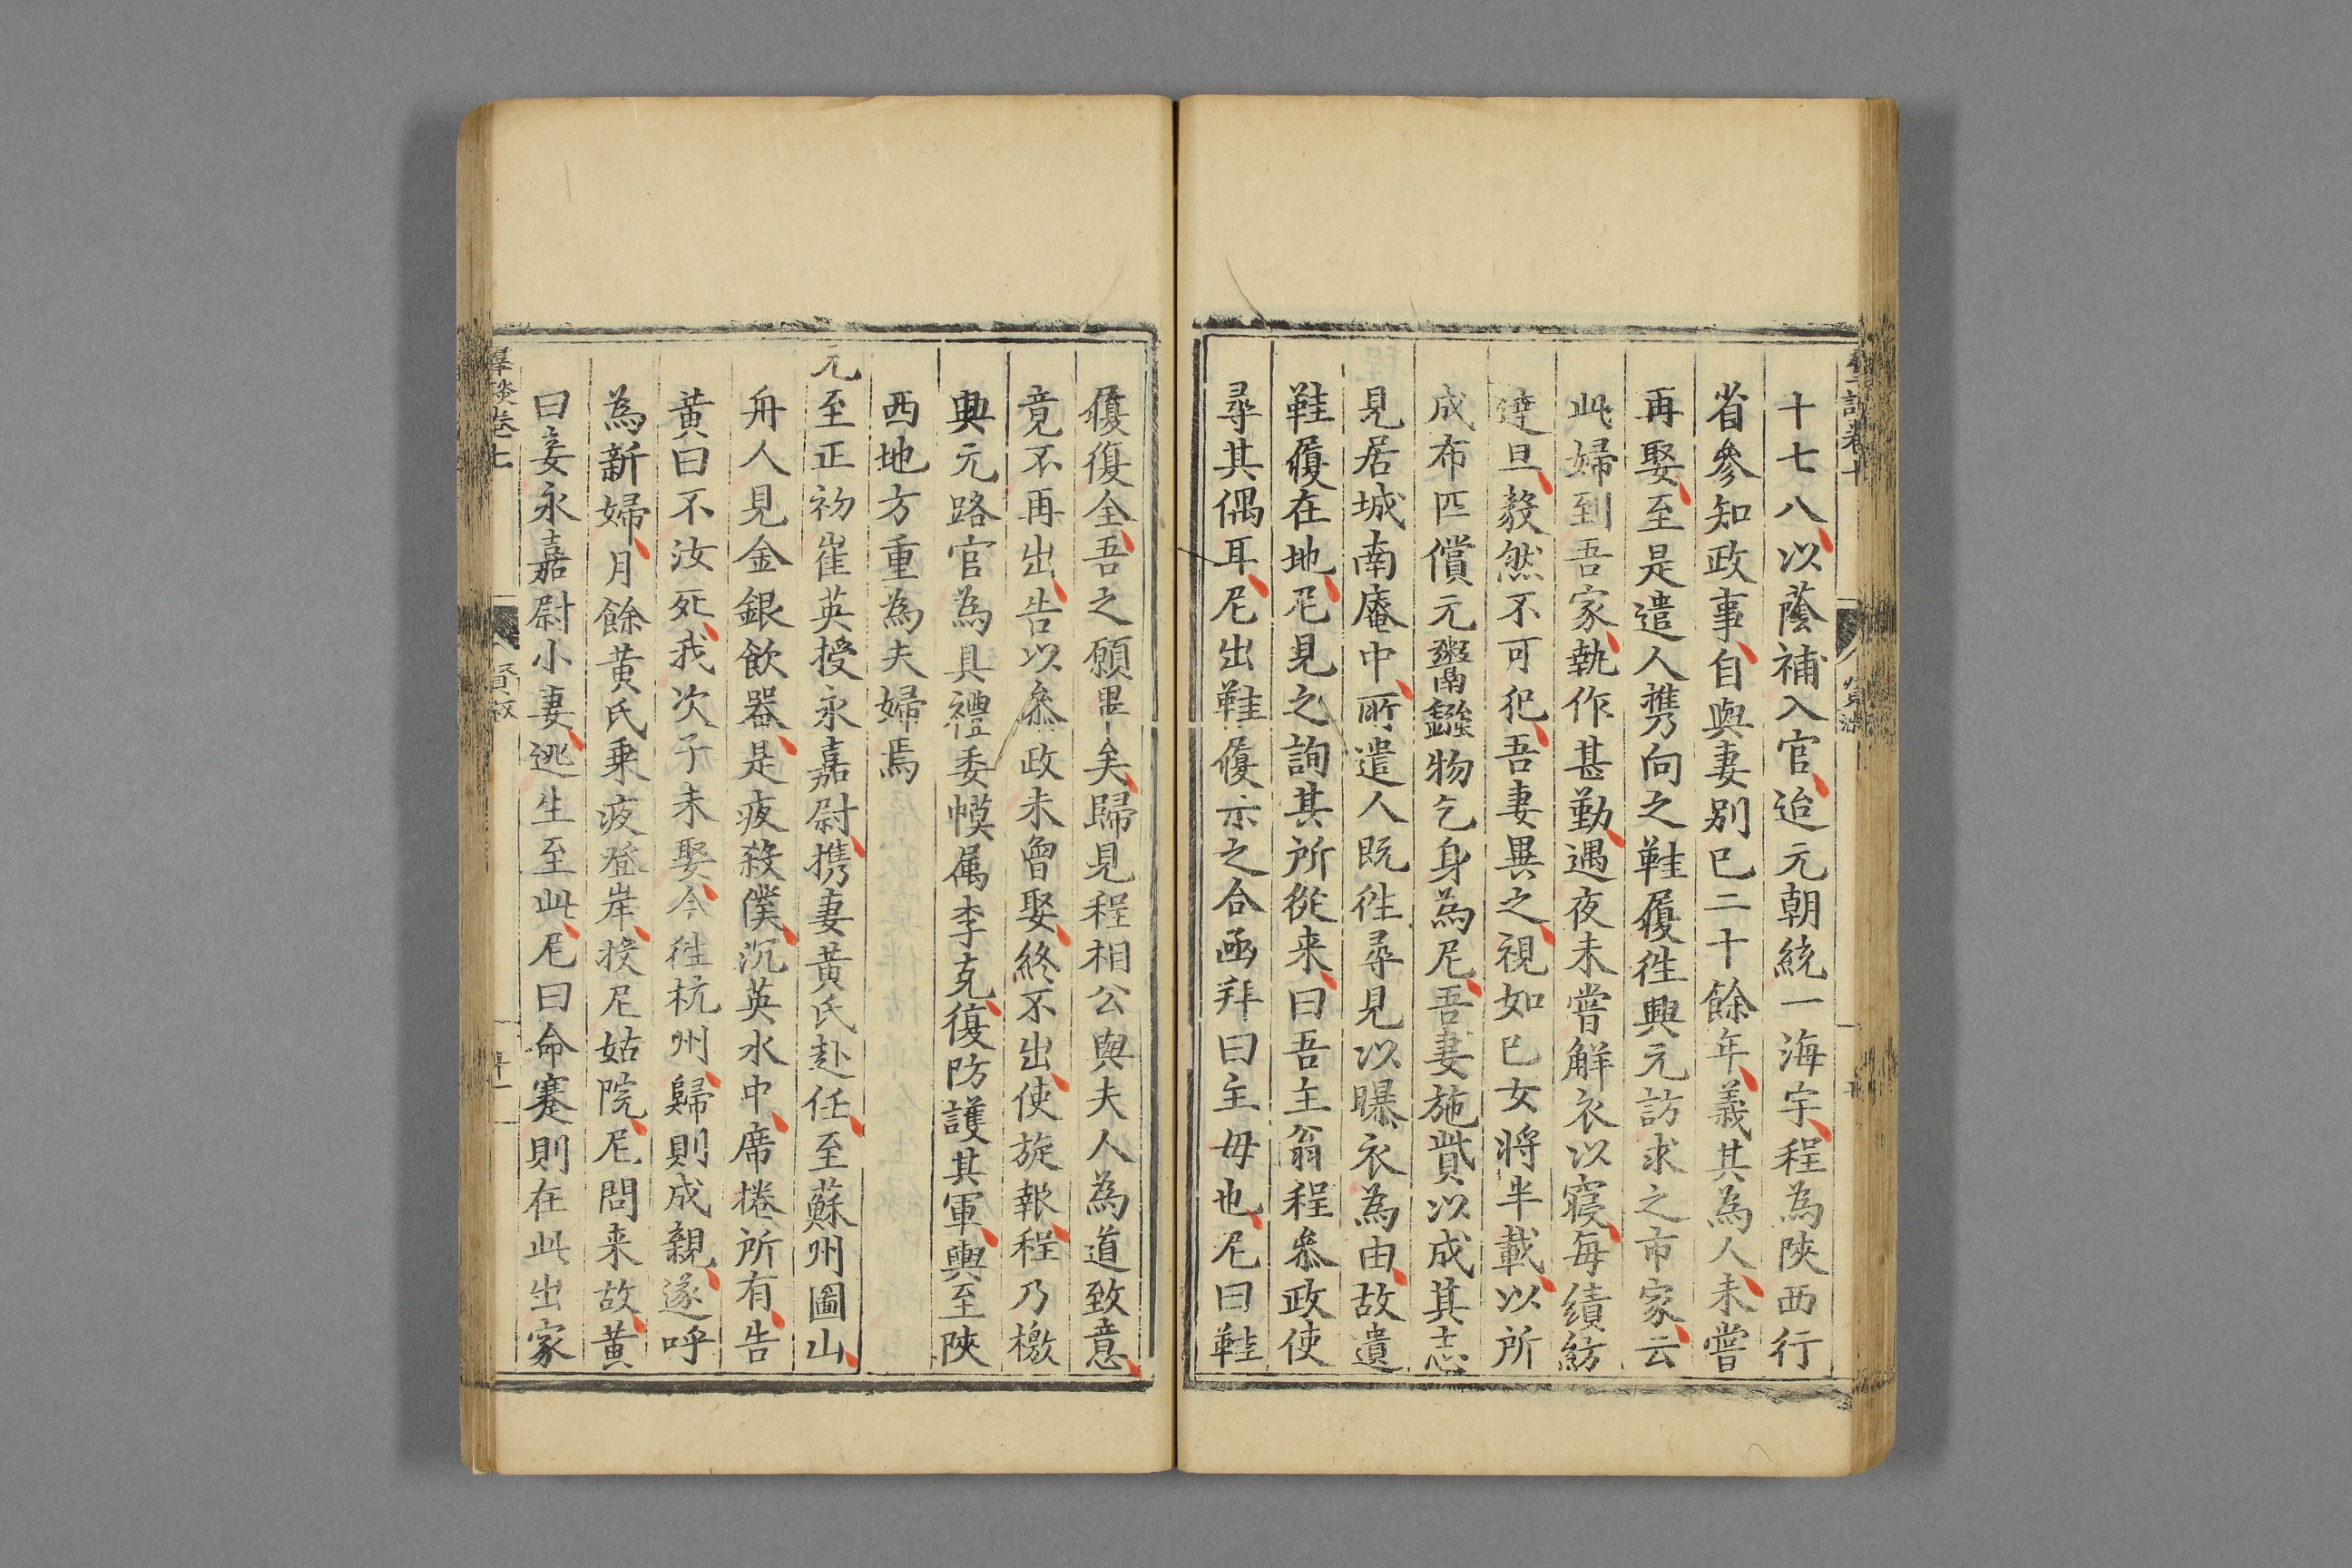 十七八以蔭補入官迨元朝統一海宇程為陝西行
省參知政事自與妻別已二十餘年義其為人未嘗
再娶至是遣人携向之鞋履徃興元訪求之市家云
此婦到吾家執作甚勤遇夜未嘗解衣以寢每績紡
達旦毅然不可犯吾妻異之視如己女將半載以所
成布匹償元鬻鏹物乞身為尼吾妻施貲以成其志
見居城南庵中所遣人既徃尋見以曝衣為由故遺
鞋履在地尼見之詢其所從来曰吾主翁程叅政使
尋其偶耳尼出鞋履示之合亟拜曰主母也尼曰鞋
履復全吾之願畢矣歸見程相公與夫人為道致意
竟不再出告以叅政未曾娶終不出使旋報程乃檄
興元路官為具禮委幙属李克復防護其軍輿至陝
西地方重為夫婦焉
元至正初崔英授永嘉尉携妻黃氏赴任至蘇州圌山
舟人見金銀飲器是夜殺僕沉英水中席捲所有告
黃曰不汝死我次子未娶今徃杭州歸則成親遂呼
為新婦月餘黃氏乗夜登岸投尼姑院尼問来故黃
曰妾永嘉尉小妻逃生至此尼曰命蹇則在此出家